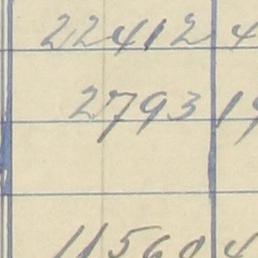 22412 4
2793 19
11560 4